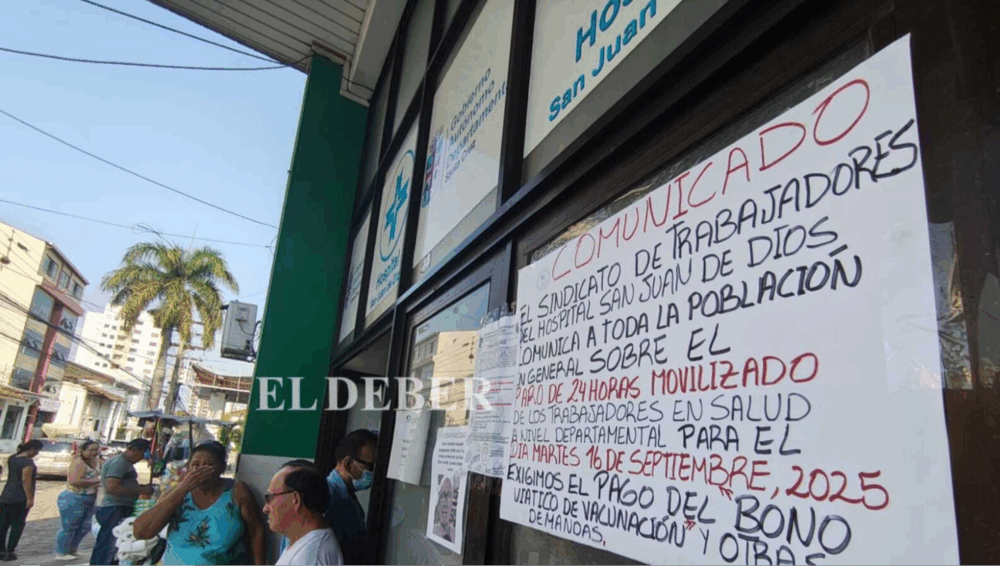 Hos
San Juan
Gobierno
Autónomo
Departament
Santa Cruz
Hospital
San Juan de Dios
COMUNICADO
EL SINDICATO DE TRABAJADORES
DEL HOSPITAL SAN JUAN DE DIOS
COMUNICA A TODA LA POBLACIÓN
EN GENERAL SOBRE EL
PARO DE 24 HORAS MOVILIZADO
DE LOS TRABAJADORES EN SALUD
A NIVEL DEPARTAMENTAL PARA EL
DIA MARTES 16 DE SEPTIEMBRE, 2025
EXIGIMOS EL PAGO DEL "BONO
VIATICO DE VACUNACIÓN" Y OTRAS
DEMANDAS.
EL DEBER